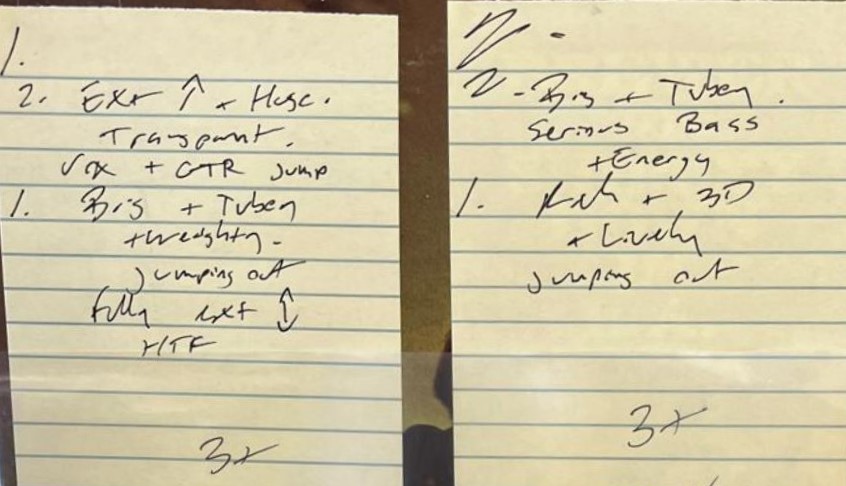 1.
2. Ext ↑ + Huge.
Transparent.
Vox + GTR jump
1. Big + Tubey
+ weighty.
jumping out
fully ext ↕
HTF
3+
2-
2- Big + Tubey.
Serious Bass
+ Energy
1. Rich + 3D
+ Lively
jumping out
3+